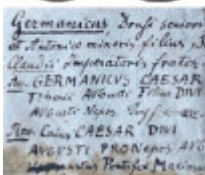 Germanicus, Drusi senioris
et Antoniae minoris filius,
Claudii Imperatoris frater
Av. GERMANICVS CAESAR
Tiberii AVGusti Filius DIVI
AVGusti Nepos
Rev. Caius CAESAR DIVI
AVGVSTI PRONepos AVG
Pontifex Maximus